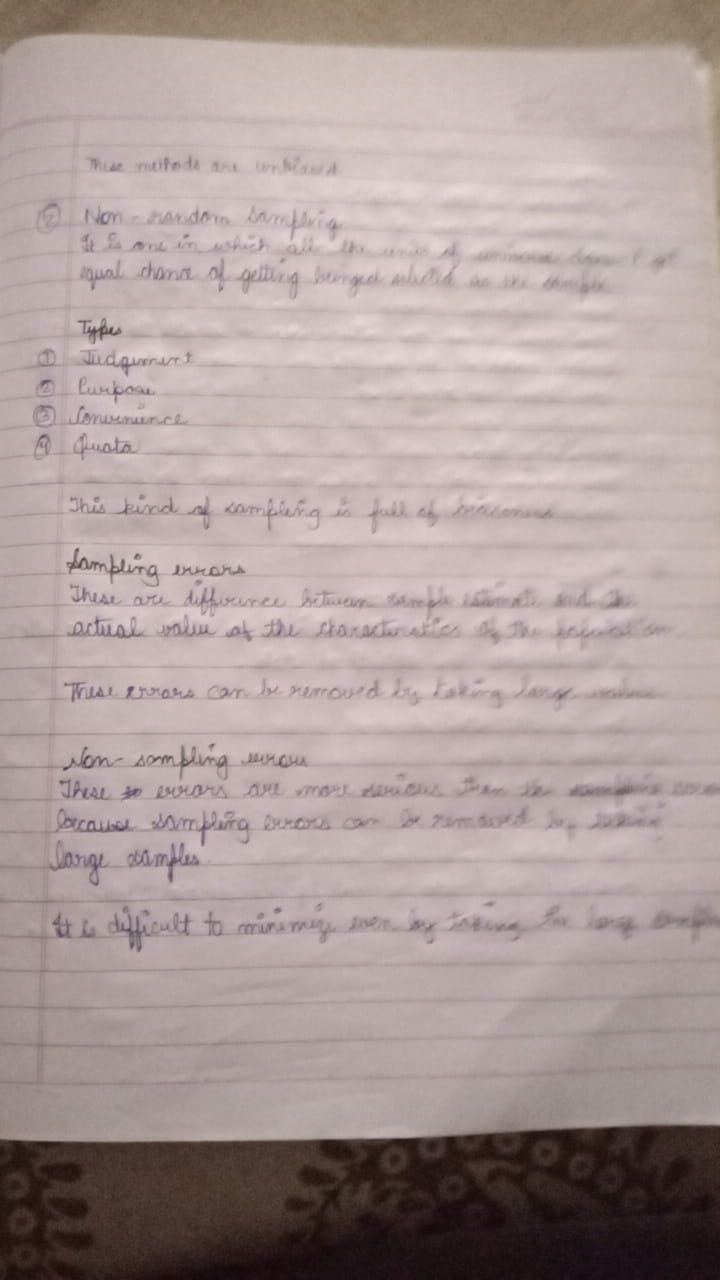 These methods are unbiased
② Non-random sampling
It is one in which all the units of
equal chance of getting selected as the sample
Types
① Judgement
② Purpose
③ Convenience
④ Quota
This kind of sampling is full of
Sampling errors
These are difference between sample estimate and the
actual value of the characteristics of the population
These errors can be removed by taking large
Non-sampling errors
These errors are more serious than the sampling
because sampling errors can be removed by
large samples.
It is difficult to minimize even by taking the large sample